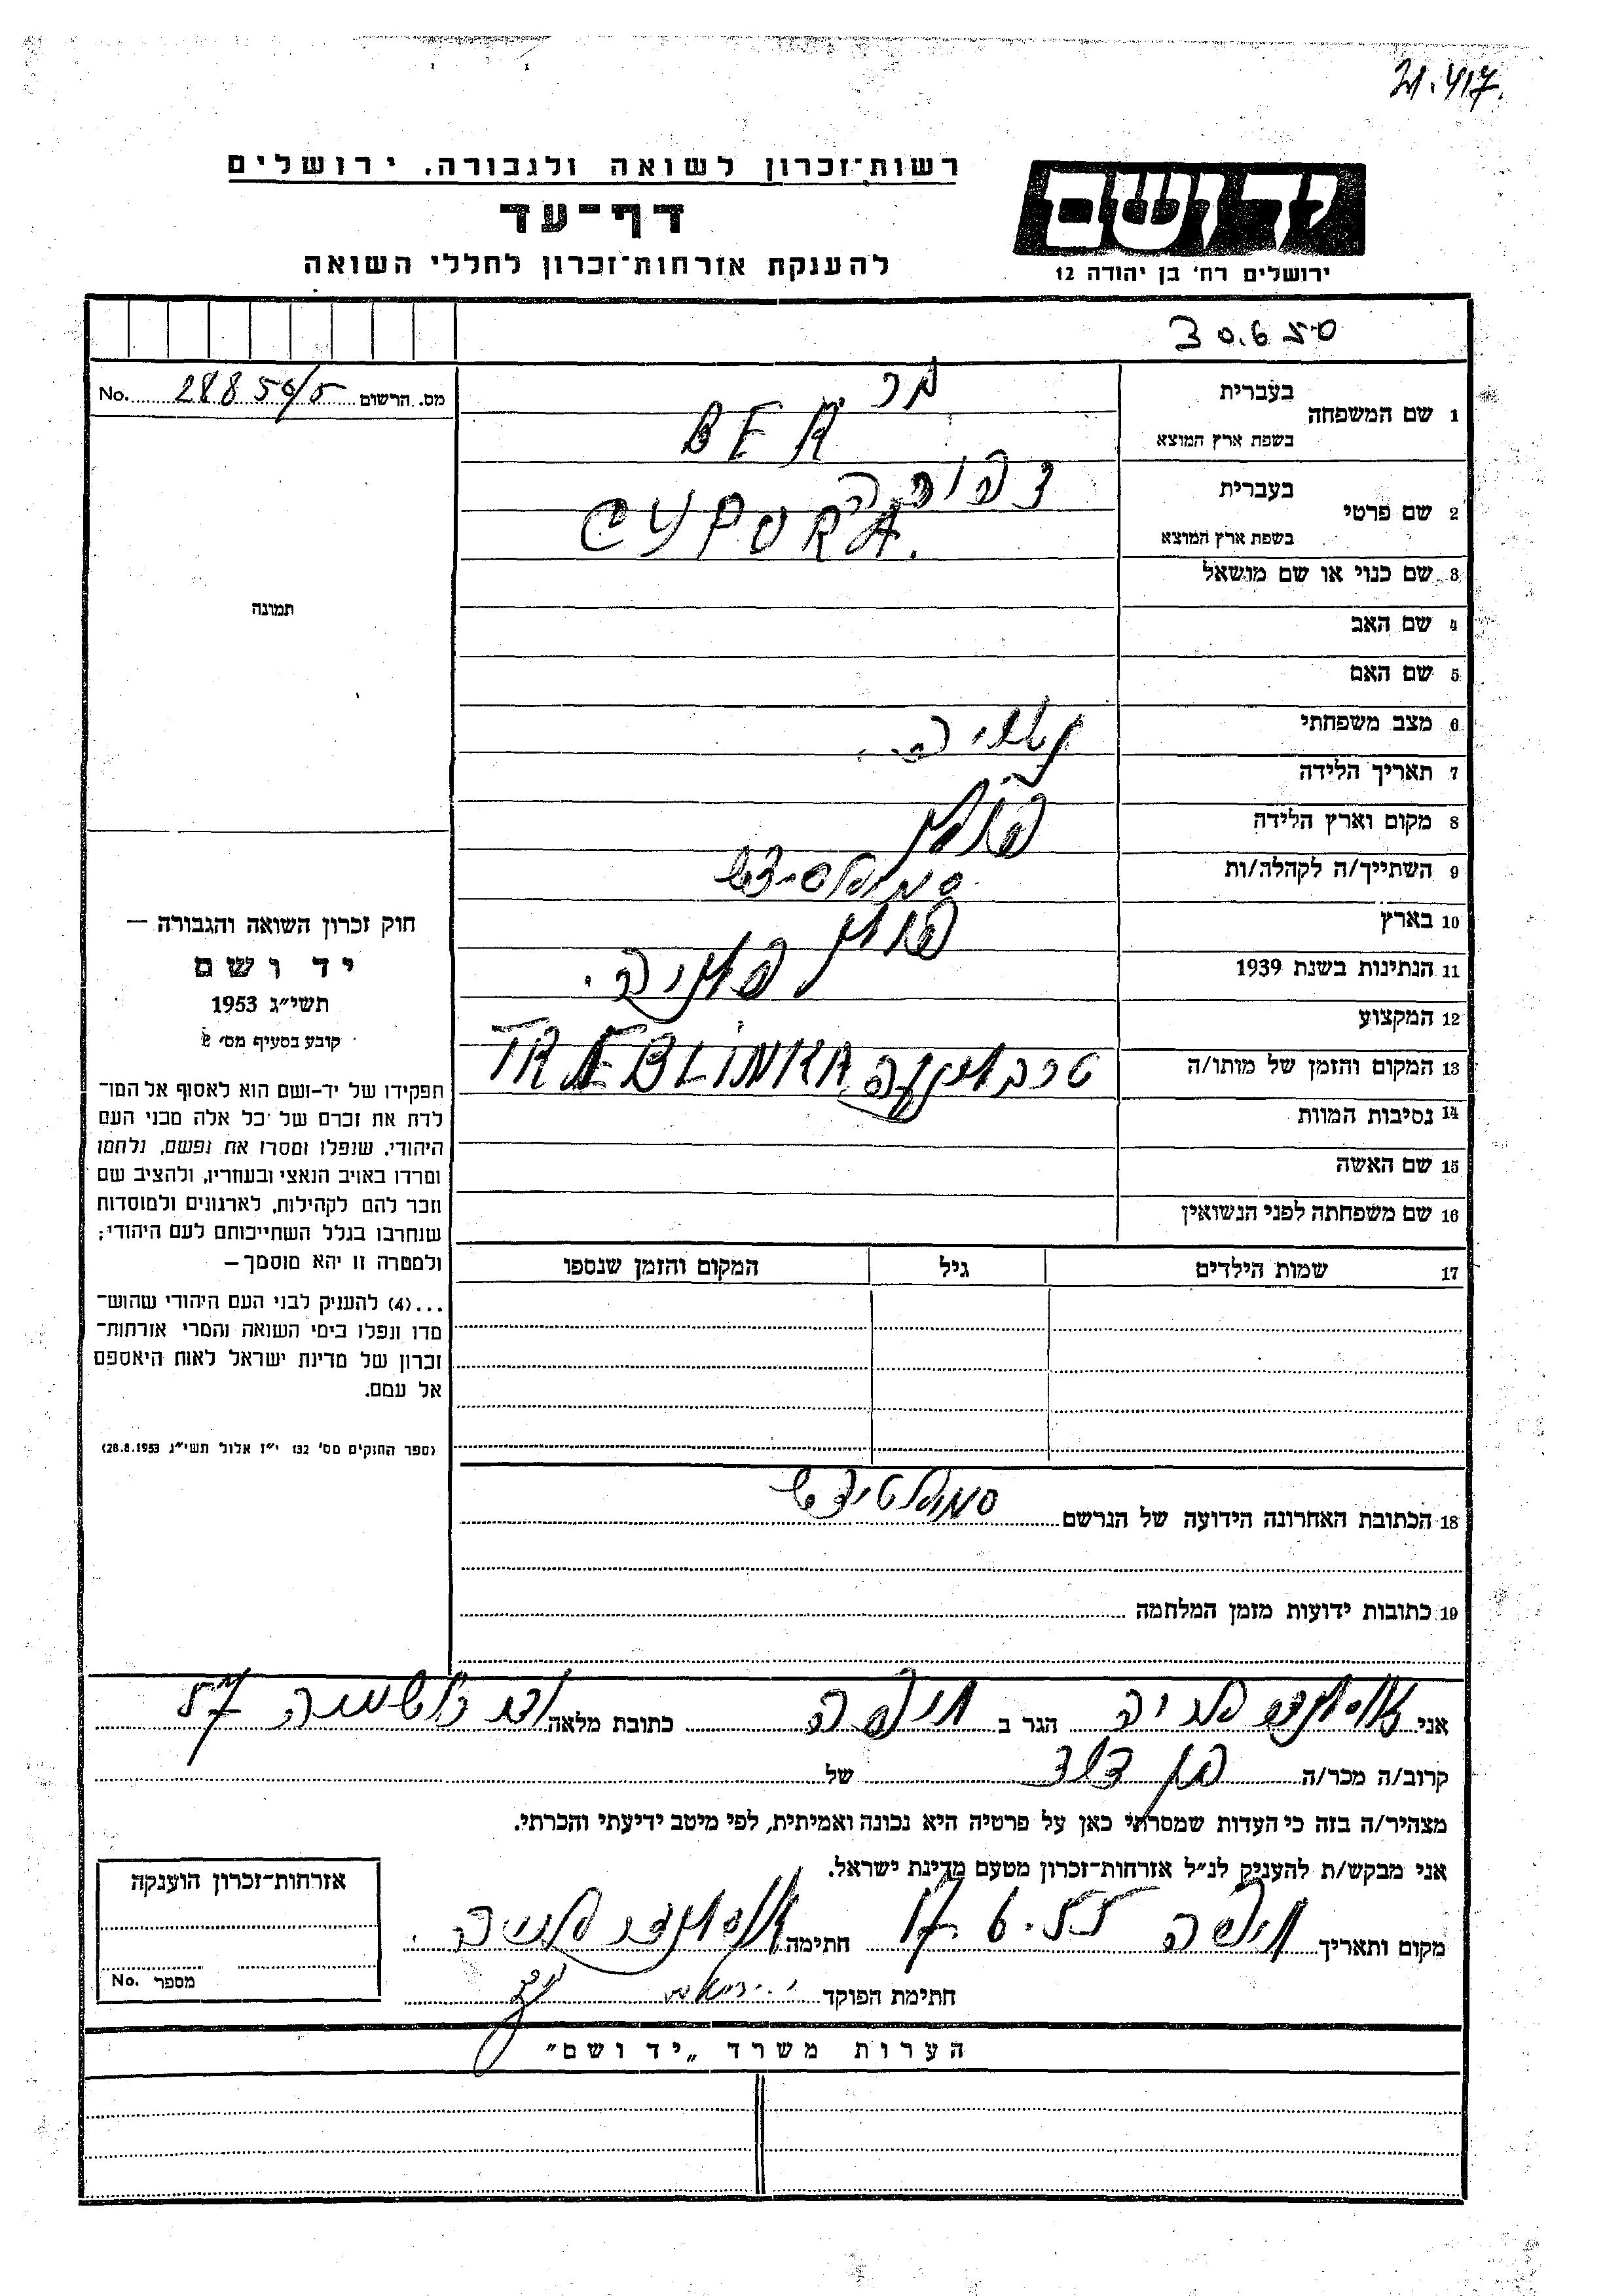 21.417.
רשות־זכרון לשואה ולגבורה, ירושלים
דף־עד
להענקת אזרחות־זכרון לחללי השואה
יד ושם
ירושלים רח׳ בן יהודה 12
30.6.50
מס. הרשום 28850/5 No.
1 שם המשפחה
בעברית בר
בשפת ארץ המוצא BER
2 שם פרטי
בעברית צפורה
בשפת ארץ המוצא CYPORA.
3 שם כנוי או שם מושאל
4 שם האב
5 שם האם
6 מצב משפחתי
7 תאריך הלידה
8 מקום וארץ הלידה פולין
9 השתייך/ה לקהלה/ות
10 בארץ פולין
11 הנתינות בשנת 1939 פולניה.
12 המקצוע
13 המקום והזמן של מותו/ה טרבלינקה TREBLINKA
14 נסיבות המוות
15 שם האשה
16 שם משפחתה לפני הנשואין
17 שמות הילדים גיל המקום והזמן שנספו
תמונה
חוק זכרון השואה והגבורה —
יד ושם
תשי״ג 1953
קובע בסעיף מס׳ 2
תפקידו של יד־ושם הוא לאסוף אל המו־
לדת את זכרם של כל אלה מבני העם
היהודי, שנפלו ומסרו את נפשם, נלחמו
ומרדו באויב הנאצי ובעוזריו, ולהציב שם
וזכר להם לקהילות, לארגונים ולמוסדות
שנחרבו בגלל השתייכותם לעם היהודי;
ולמטרה זו יהא מוסמך —
...(4) להעניק לבני העם היהודי שהוש־
מדו ונפלו בימי השואה והמרי אזרחות־
זכרון של מדינת ישראל לאות היאספם
אל עמם.
(ספר החוקים מס׳ 132 י״ז אלול תשי״ג 28.8.1953)
18 הכתובת האחרונה הידועה של הנרשם
19 כתובות ידועות מזמן המלחמה
אני הגר ב חיפה כתובת מלאה 57
קרוב/ה מכר/ה בן דוד של
מצהיר/ה בזה כי העדות שמסרתי כאן על פרטיה היא נכונה ואמיתית, לפי מיטב ידיעתי והכרתי.
אני מבקש/ת להעניק לנ״ל אזרחות־זכרון מטעם מדינת ישראל.
מקום ותאריך חיפה 17.6.55 חתימה
חתימת הפוקד
אזרחות־זכרון הוענקה
מספר No.
הערות משרד „יד ושם״